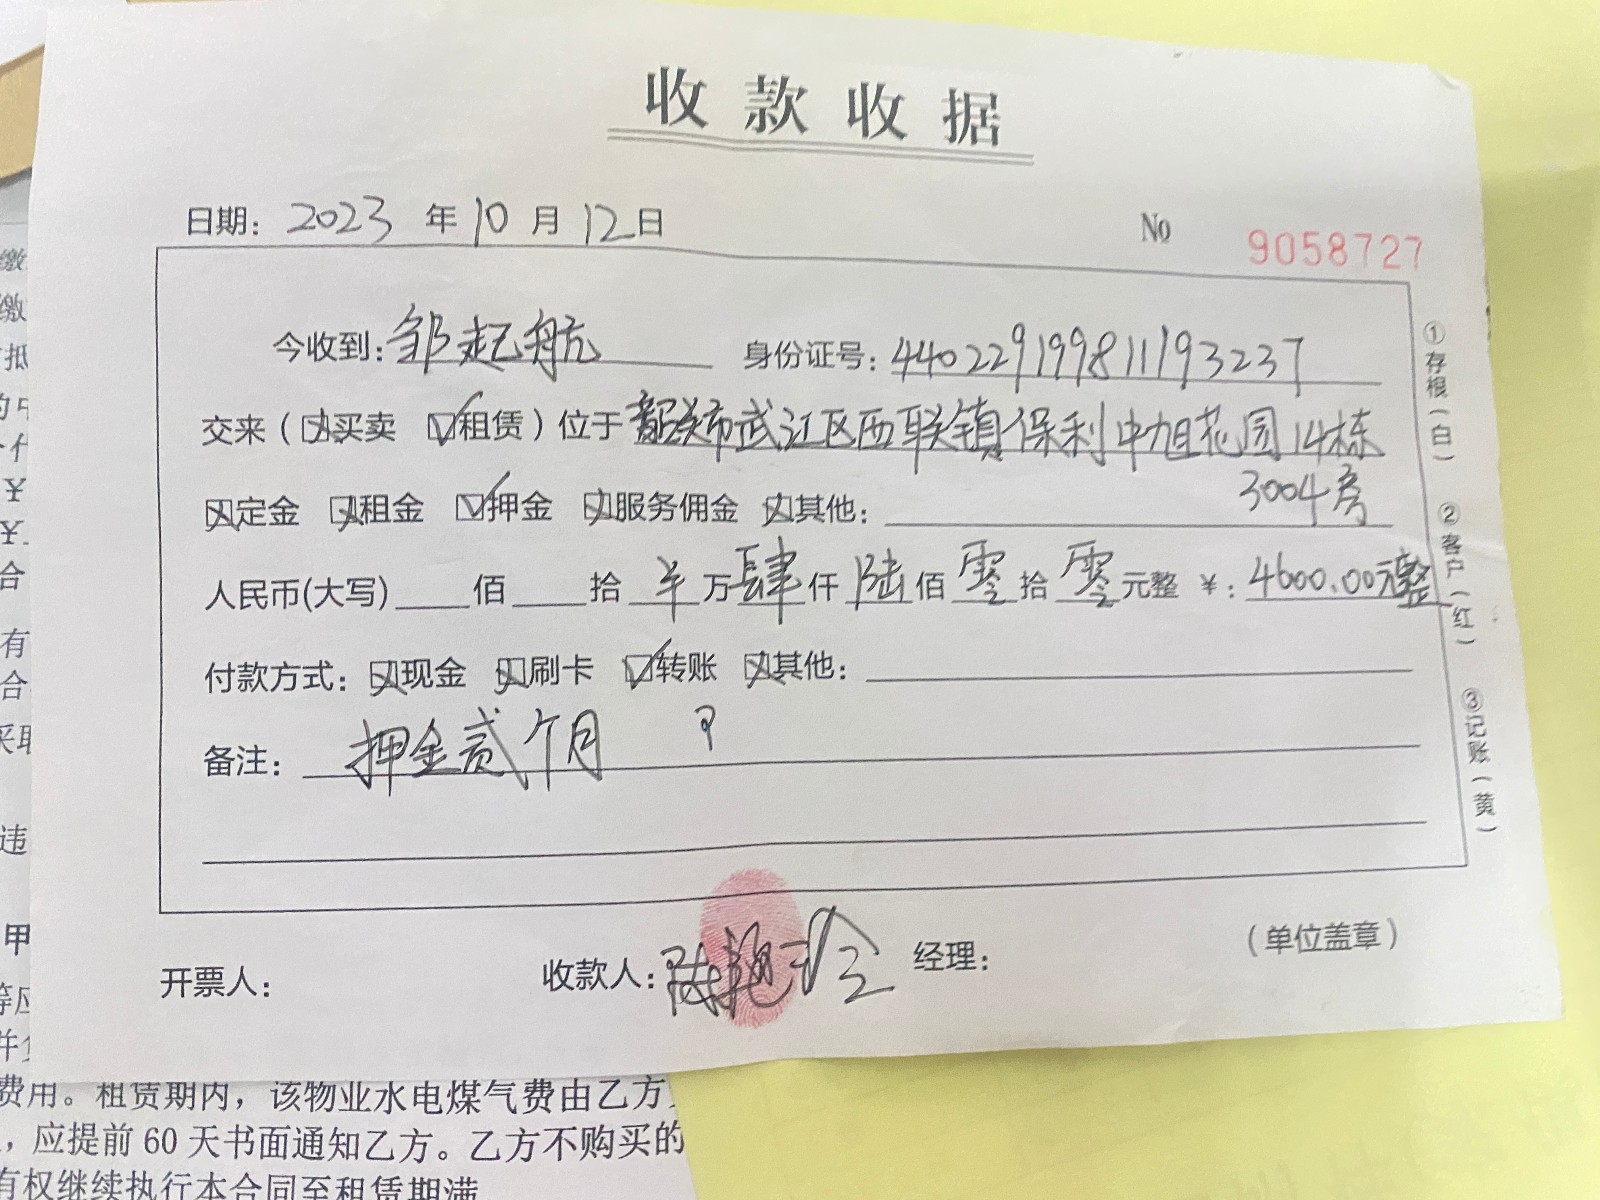 收款收据
日期: 2023 年 10 月 12 日
No 9058727
今收到: 邹起航 身份证号: 440229199811193237
交来 (☒买卖 ☑租赁) 位于 韶关市武江区西联镇保利中旭花园14栋
3004房
☒定金 ☒租金 ☑押金 ☒服务佣金 ☒其他:
人民币(大写) 佰 拾 万 肆 仟 陆 佰 零 拾 零 元整 ¥: 4600.00元整
付款方式: ☒现金 ☒刷卡 ☑转账 ☒其他:
备注: 押金贰个月
开票人: 收款人: 陈艳玲 经理: (单位盖章)
①存根(白) ②客户(红) ③记账(黄)
缴
缴
抵
¥
¥
合
有
合
采取
违
甲
等应
费用。租赁期内，该物业水电煤气费由乙方
，应提前 60 天书面通知乙方。乙方不购买的
有权继续执行本合同至租赁期满